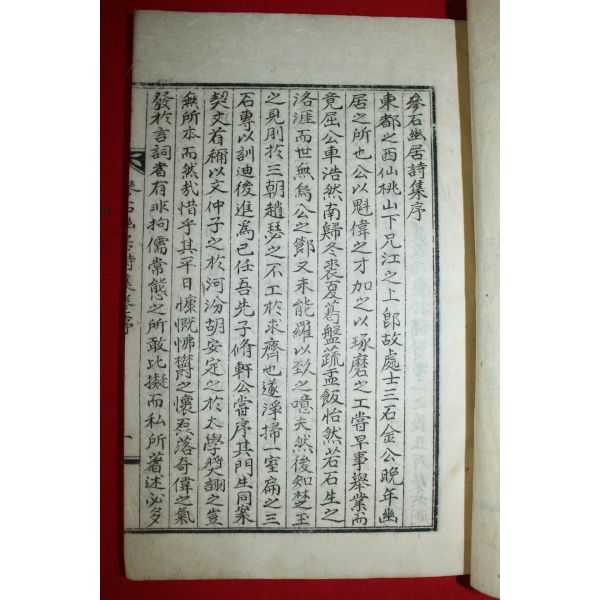 參石幽居詩集序
東都之西仙桃山下兄江之上卽故處士三石金公晩年幽
居之所也公以魁偉之才加之以琢磨之工嘗早事舉業而
竟屈公車浩然南歸冬裘夏葛盤蔬盂飯怡然若石生之
洛涯而世無烏公之節又未能羅以致之噫夫然後知楚玉
之見刖於三朝趙瑟之不工於求齊也遂淨掃一室扁之三
石專以訓迪後進爲己任吾先子脩軒公嘗序其門生同案
契文首稱以文仲子之於河汾胡安定之於太學奬詡之豈
無所本而然哉惜乎其平日慷慨怫鬱之懷磊落奇偉之氣
發於言詞者有非拘儒常態之所敢比擬而私所著述必多
參石幽居詩集序
一